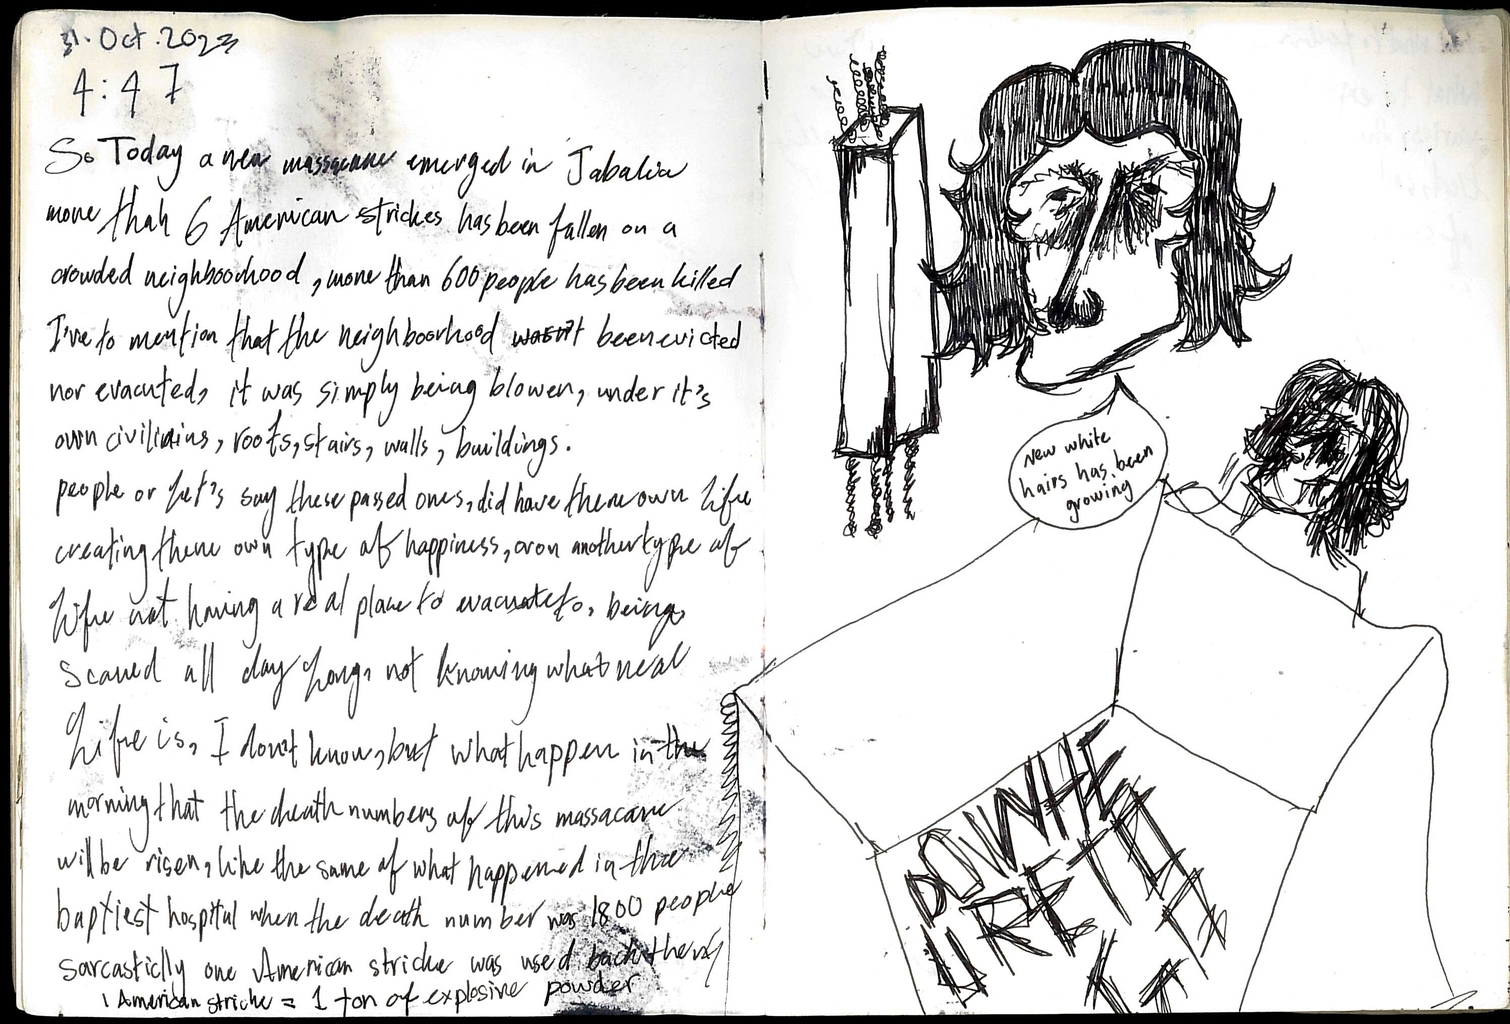 31. Oct. 2023
4:47
So Today a new massacare emerged in Jabalia
more than 6 American strickes has been fallen on a
crowded neighboorhood, more than 600 people has been killed
I've to mention that the neighboorhood wasn't been evicted
nor evacuted, it was simply being blowen, under it's
own civilians, roofs, stairs, walls, buildings.
people or let's say these passed ones, did have there own life
creating there own type of happiness, or on another type of
life not having a real place to evacuate to, being,
scared all day long, not knowing what real
life is, I don't know, but what happen in the
morning that the death numbers of this massacare
will be risen, like the same of what happened in the
baptiest hospital when the death number was 1800 people
sarcasticlly one American stricke was used back then
1 American stricke = 1 ton of explosive powder
New white
hairs has been
growing